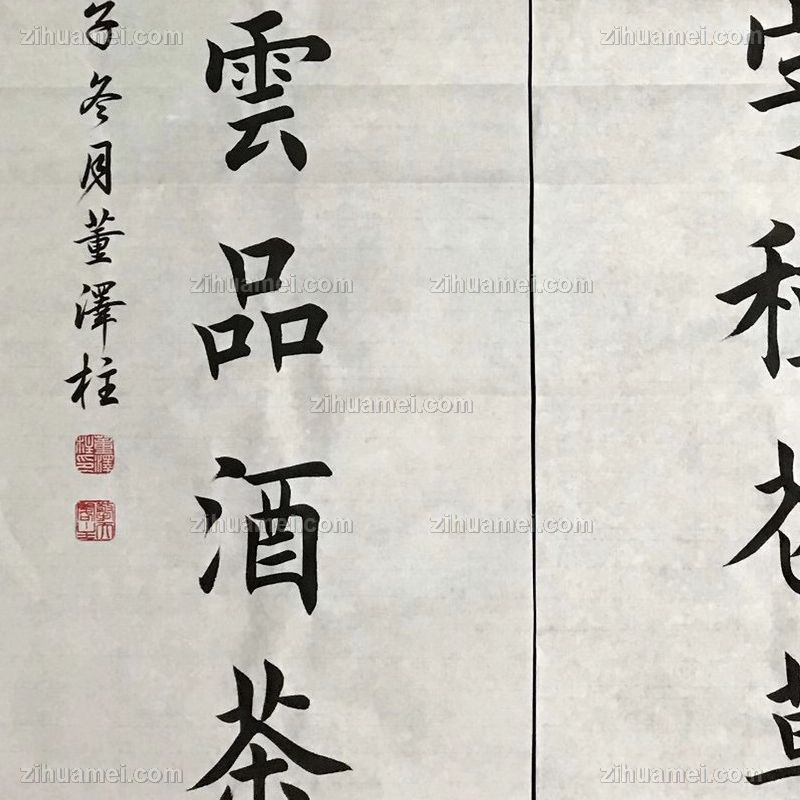 種花草
雲品酒茶
子冬月董澤柱
zihuamei.com
zihuamei.com
zihuamei.com
zihuamei.com
zihuamei.com
zihuamei.com
zihuamei.com
zihuamei.com
zihuamei.com
zihuamei.com